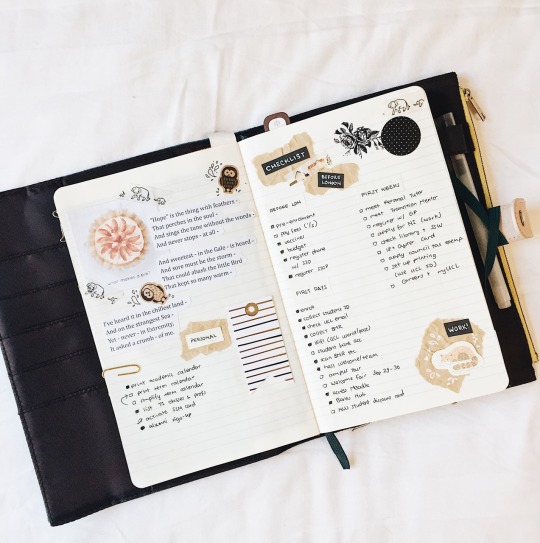 "Hope" is the thing with feathers -
That perches in the soul -
And sings the tune without the words -
And never stops - at all -
And sweetest - in the Gale - is heard -
And sore must be the storm -
That could abash the little Bird
That kept so many warm -
I've heard it in the chillest land -
And on the strangest Sea -
Yet - never - in Extremity,
It asked a crumb - of me.
PERSONAL
print academic calendar
print term calendar
simplify term calendar
list
activate SIM card
alumni sign-up
CHECKLIST
BEFORE LONDON
BEFORE
pre-enrolment
pay fees
vaccine
budget
register phone
w/
register
FIRST DAYS
enrol
collect student ID
check UCL email
collect BRP
WiFi
student bank acc
scan BRP etc
campus tour
Welcome Fair Sep 29-30
access Moodle
student discount card
FIRST WEEK!
meet Personal Tutor
meet Transition Mentor
register w/ GP
apply for NI (work)
check library +
18+ Oyster card
apply council tax exemp
set up printing
(use UCL ID)
WORK!